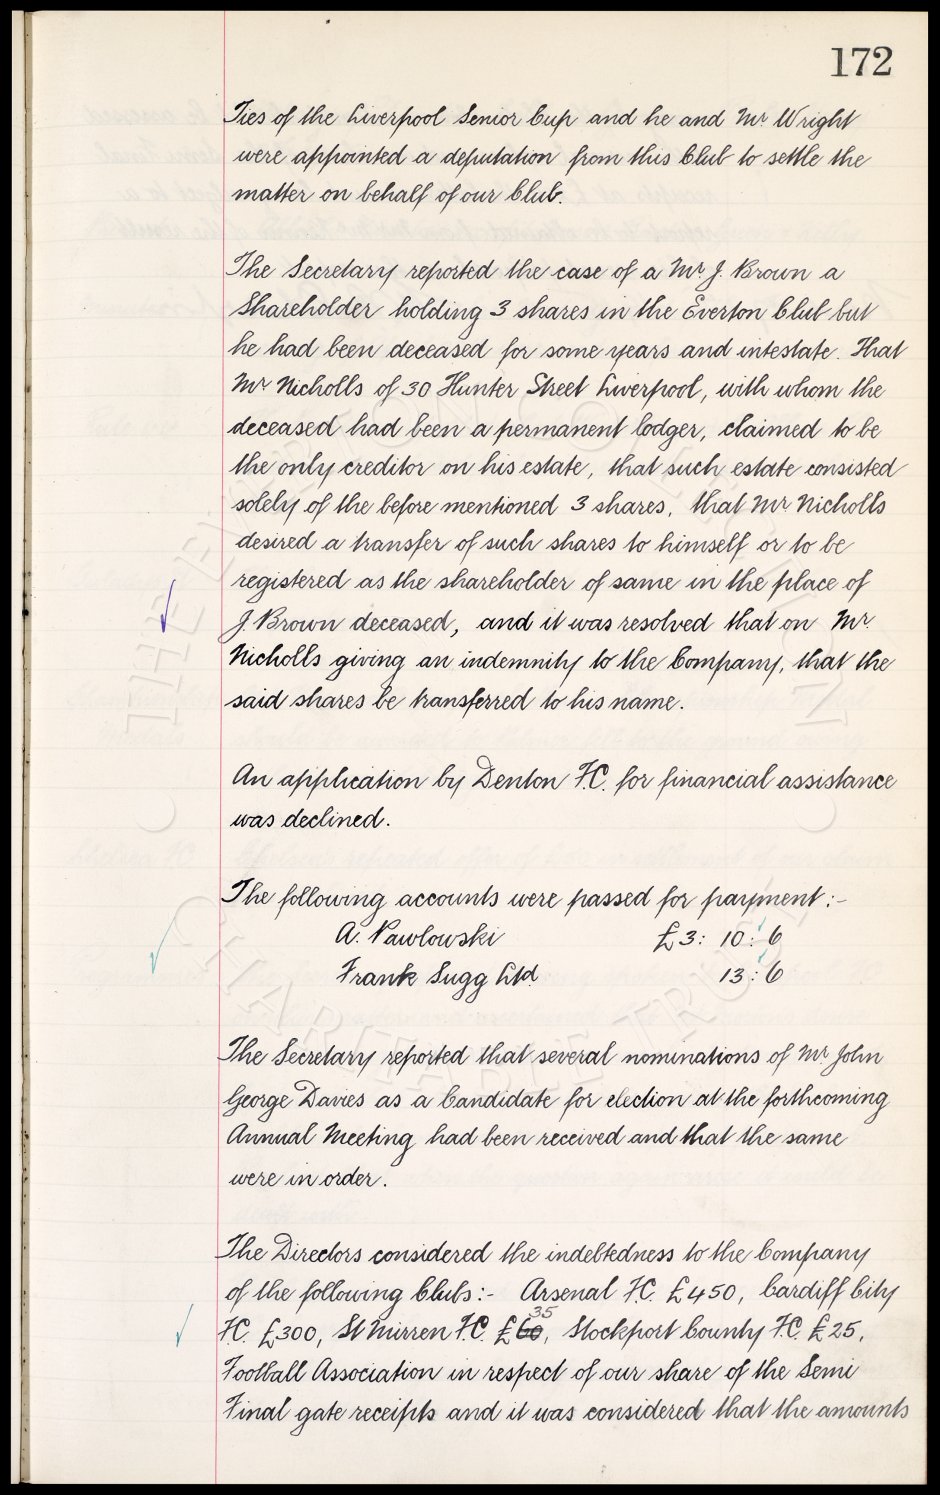 172
Ties of the Liverpool Senior Cup and he and Mr Wright
were appointed a deputation from this Club to settle the
matter on behalf of our Club.
The Secretary reported the case of a Mr J. Brown a
Shareholder holding 3 shares in the Everton Club but
he had been deceased for some years and intestate. That
Mr Nicholls of 30 Hunter Street Liverpool, with whom the
deceased had been a permanent lodger, claimed to be
the only creditor on his estate, that such estate consisted
solely of the before mentioned 3 shares, that Mr Nicholls
desired a transfer of such shares to himself or to be
registered as the shareholder of same in the place of
J. Brown deceased, and it was resolved that on Mr.
Nicholls giving an indemnity to the Company, that the
said shares be transferred to his name.
An application by Denton F.C. for financial assistance
was declined.
The following accounts were passed for payment :-
A. Pawlowski £3: 10: 6
Frank Sugg Ltd. 13: 6
The Secretary reported that several nominations of Mr John
George Davies as a Candidate for election at the forthcoming
Annual Meeting had been received and that the same
were in order.
The Directors considered the indebtedness to the Company
of the following Clubs:- Arsenal F.C. £450, Cardiff City
35
F.C. £300, St Mirren F.C. £60, Stockport County F.C. £25,
Football Association in respect of our share of the Semi
Final gate receipts and it was considered that the amounts
THE EVERTON COLLECTION
CHARITABLE TRUST